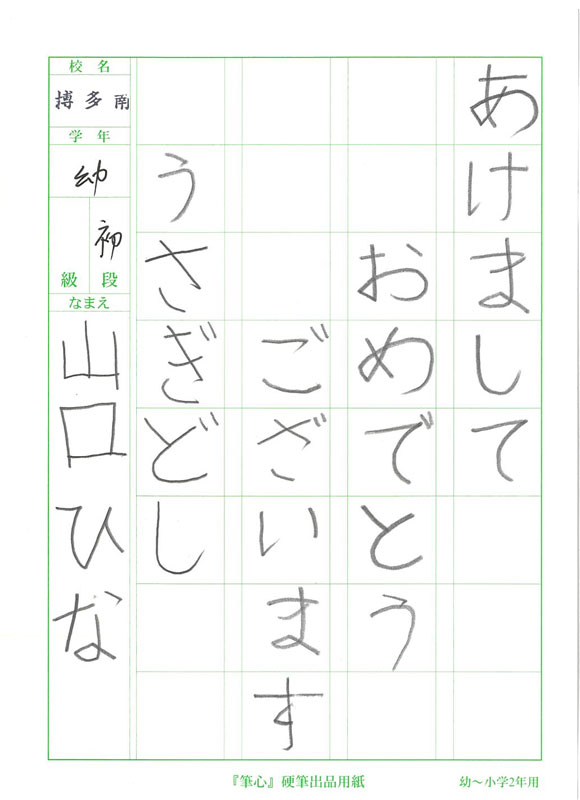 あけまして
おめでとう
ございます
うさぎどし
校名
博多南
学年
幼
初
級 段
なまえ
山口ひな
『筆心』硬筆出品用紙
幼〜小学2年用